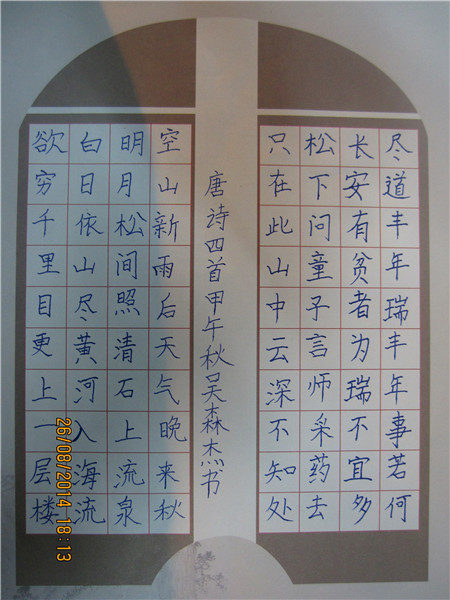 尽道丰年瑞丰年事若何
长安有贫者为瑞不宜多
松下问童子言师采药去
只在此山中云深不知处
唐诗四首甲午秋吴森杰书
空山新雨后天气晚来秋
明月松间照清石上流泉
白日依山尽黄河入海流
欲穷千里目更上一层楼
26/08/2014 18:13